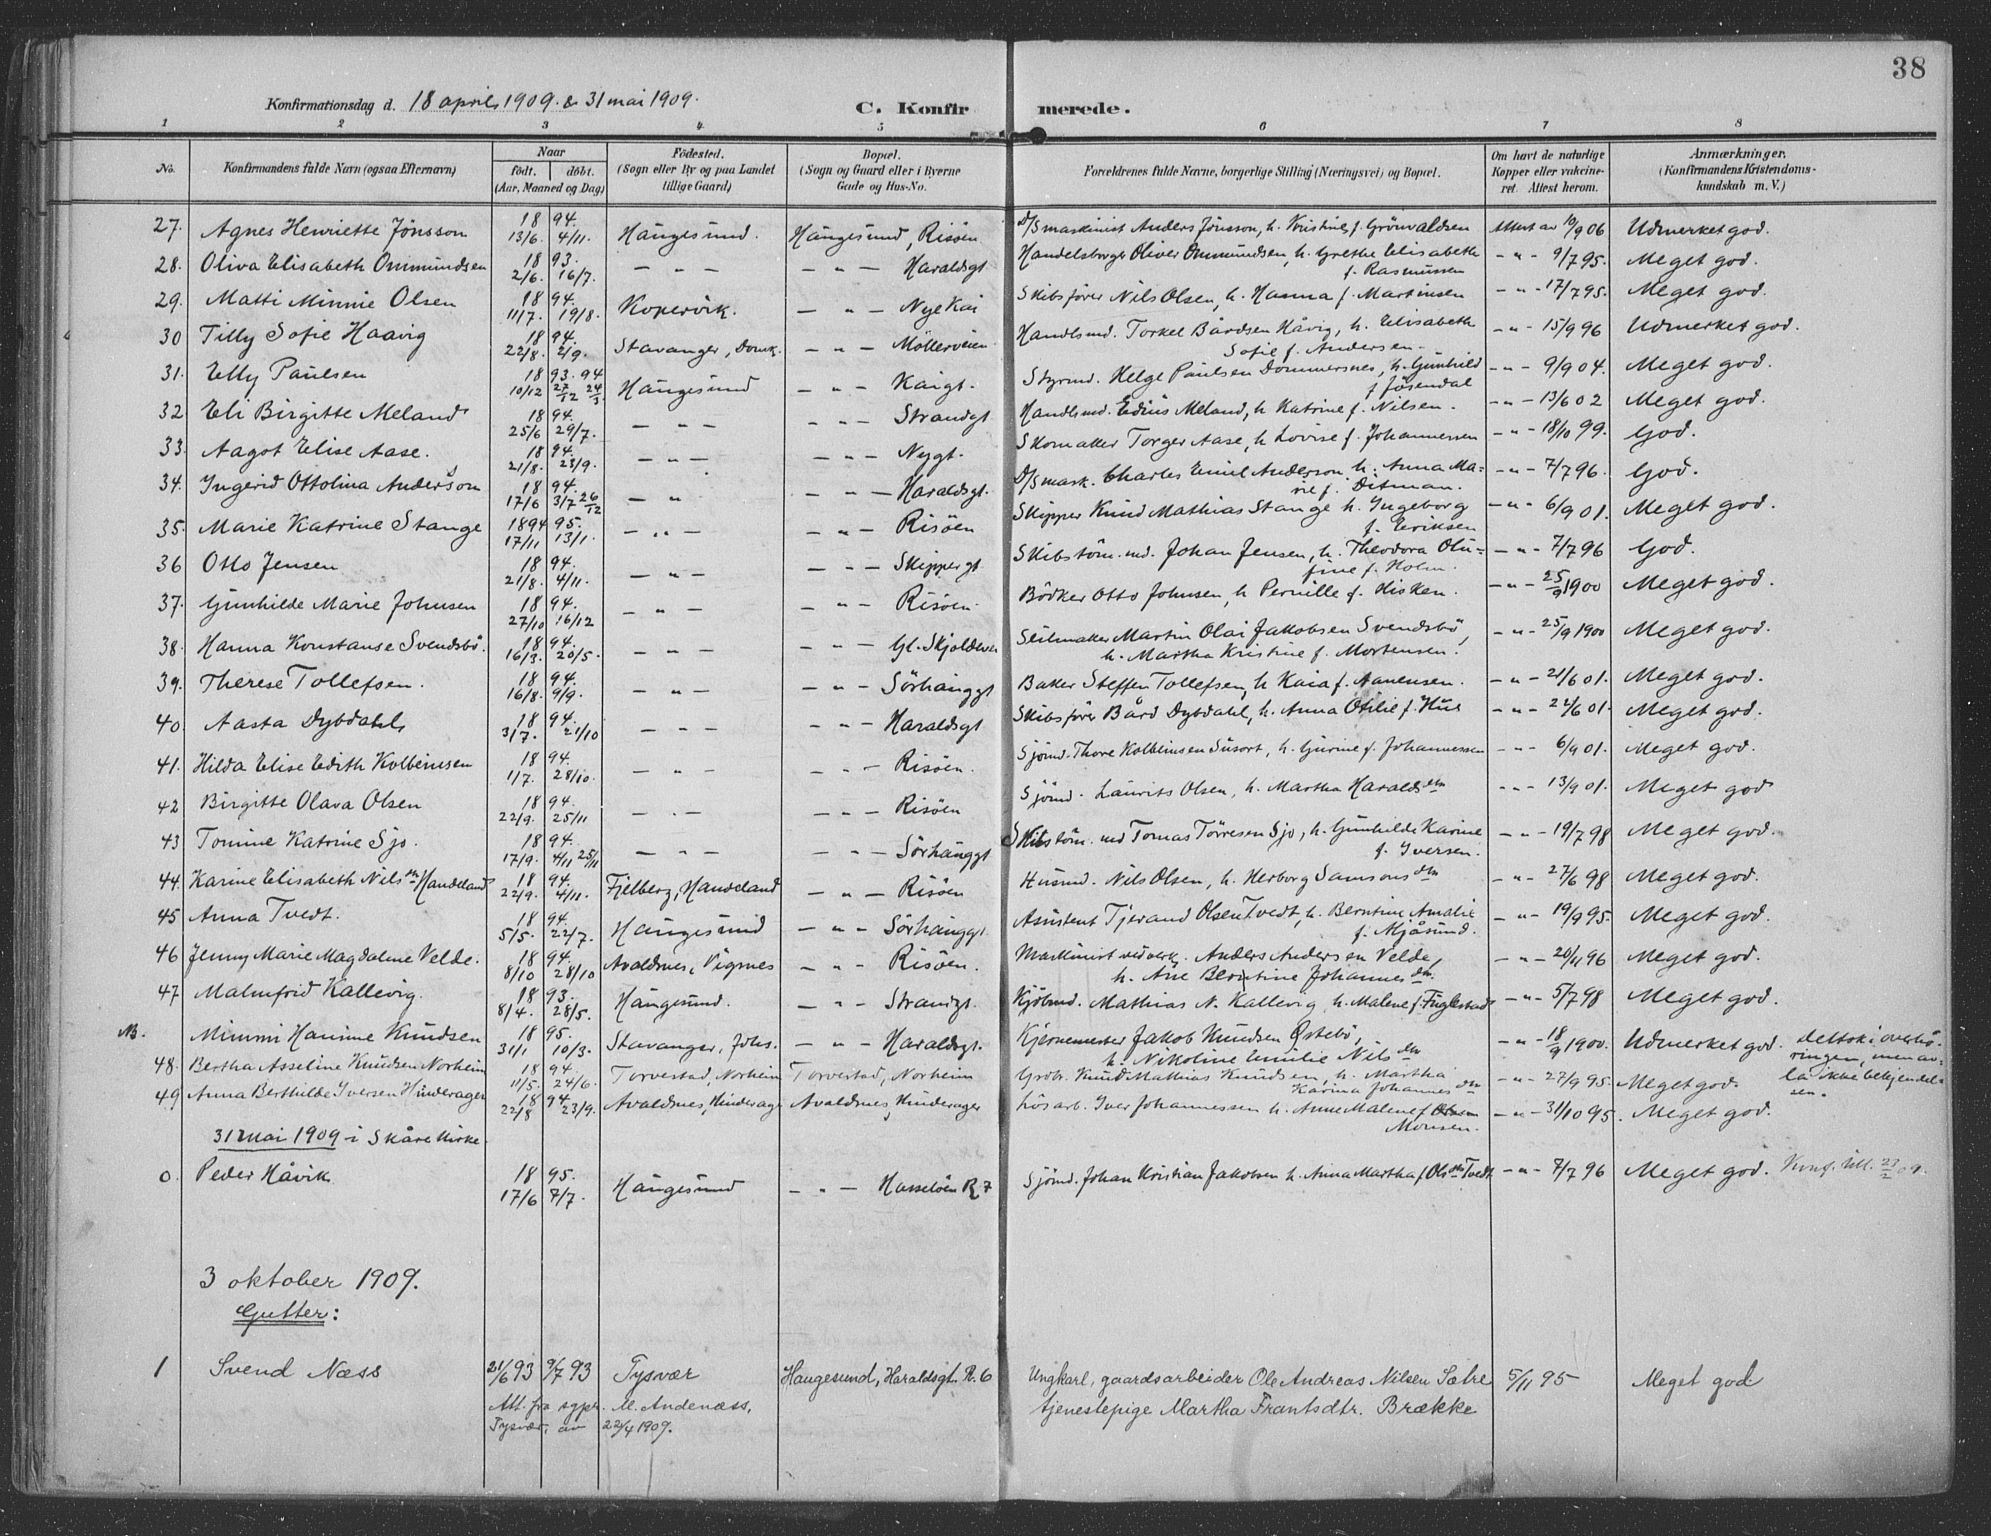 38
Konfirmationsdag d. 18 april 1909. & 31 mai 1909.
C. Konfirmerede.
1 2 3 4 5 6 7 8
No. Konfirmandens fulde Navn (ogsaa Efternavn) Naar født. døbt. (Aar, Maaned og Dag) Fødested. (Sogn eller By og paa Landet tillige Gaard) Bopæl. (Sogn og Gaard eller i Byerne Gade og Hus-No. Forældrenes fulde Navne, borgerlige Stilling (Næringsvei) og Bopæl. Om havt de naturlige Kopper eller vaccineret. Attest herom. Anmærkninger. (Konfirmandens Kristendomskundskab m. V.)
27. Agnes Henriette Jönsson 1894. 13/6. 4/11. Haugesund. Haugesund, Risöen D/S maskinist Anders Jönsson, h. Kristine f. Grönvaldsen Attest av 10/9 06 Udmerket god.
28. Oliva Elisabeth Ommundsen 1893. 2/6. 16/7. — " — — " — Haraldsgt Handelsborger Oliver Ommundsen, h. Grethe Elisabeth f. Rasmussen — " — 9/7 95. Meget god.
29. Matti Minnie Olsen 1894. 11/7. 19/8. Kopervik. — " — Nye Kai Skibsförer Nils Olsen, h. Hanna f. Martinsen — " — 17/7 95. Meget god.
30 Tilly Sofie Haavig 1894. 22/8. 2/9. Stavanger, Domk. — " — Möllerveien Handlsmd. Torkel Bårdsen Håvig, h. Elisabeth Sofie f. Andersen — " — 15/9 96 Udmerket god.
31. Elly Paulsen 1893. 94 10/12 27/12 24/3 Haugesund — " — Kaigt. Styrmd. Helge Paulsen Dommersnes, h. Gunhild f. Jösendal — " — 9/9 04. Meget god.
32 Eli Birgitte Meland 1894. 25/6 29/7. — " — — " — Strandgt Handlsmd. Edius Meland, h. Katrine f. Nilsen. — " — 13/6 02 Meget god.
33. Aagot Elise Aase. 1894. 21/8. 23/9. — " — — " — Nygt. Skomaker Torger Aase, h. Lovise f. Johannessen — " — 18/10 99. God.
34. Ingerid Ottolina Anderson 1894. 17/6 3/7 26/12 — " — " — Haraldsgt. D/S mask. Charles Emil Anderson h. Anna Marie f. Ditman. — " — 7/7 96. God.
35. Marie Katrine Stange 1894 95. 17/11 13/1. — " — — " — Risöen Skipper Knud Mathias Stange h. Ingeborg f. Eriksen — " — 6/9 01. Meget god.
36 Otto Jensen 1894. 21/8. 4/11. — " — — " — Skippergt Skibstöm.md. Johan Jensen, h. Theodora Olufine f. Holm. — " — 7/7 96 God.
37. Gunhilde Marie Johnsen 1894. 27/10 16/12 — " — — " — Risöen. Bödker Otto Johnsen, h Pernille f. Hisken. — " — 25/9 1900 Meget god.
38. Hanna Konstanse Svendsbö. 1894. 16/3. 20/5. — " — — " — Gl. Skjoldevei Seilmaker Martin Olai Jakobsen Svendsbö, h. Martha Kristine f. Mortensen. — " — 25/9 1900 Meget god.
39. Therese Tollefsen. 1894. 16/8. 9/9. — " — — " — Sörhauggt Baker Steffen Tollefsen, h Kaia f. Aanensen. — " — 21/6 01. Meget god.
40. Aasta Dybdahl 1894. 3/7. 21/10 — " — — " — Haraldsgt Skibsförer Bård Dybdahl, h. Anna Otilie f. Hus — " — 22/6 01. Meget god.
41. Hilda Elise Edith Kolbeinsen 1894. 1/7. 28/10. — " — — " — Risöen. Sjömd. Thore Kolbeinsen Susort, h. Gurine f. Johannessen — " — 6/9 01. Meget god.
42 Birgitte Olava Olsen 1894. 22/9. 25/11 — " — — " — Risöen Sjömd. Laurits Olsen, h. Martha Haraldsdtr — " — 13/9 01. Meget god
43 Tomine Katrine Sjo. 1894. 17/9. 4/11 25/11 — " — — " — Sörhauggt Skibstöm. md Tomas Törresen Sjo, h. Gunhilde Karine f. Iversen. — " — 19/7 98 Meget god.
44. Karine Elisabeth Nilsdtr Handeland 1894. 22/9. 4/11. Fjelberg, Handeland — " — Risöen Husmd. Nils Olsen, h. Herborg Samsonsdtr — " — 27/6 98 Meget god.
45 Anna Tvedt. 1894. 5/5. 22/7. Haugesund — " — Sörhauggt. Assistent Tjerand Olsen Tvedt, h. Berntine Amalie f. Mjåsund. — " — 19/9 95. Meget god.
46 Jenny Marie Magdalene Velde. 1894. 8/10 28/10 Avaldnes, Vigsnes — " — Risöen. Maskinist ved verk. Anders Andersen Velde, h. Ane Berntine Johannesdtr. — " — 20/11 96 Meget god.
47 Malmfrid Kallevig. 1893. 8/4. 28/5. Haugesund. — " — Strandgt. Kjöbmd. Mathias N. Kallevig, h. Malene f. Fuglestad — " — 5/7 98 Meget god.
NB. Mimmi Hanine Knudsen 1895. 31/1 10/3. Stavanger, Johs. — " — Haraldsgt. Kjernemester Jakob Knudsen Østebö, h. Nikoline Emilie Nilsdtr — " — 18/9 1900. Udmerket god. deltok i overhöringen, men avla ikke bekjendelsen.
48. Bertha Asseline Knudsen Norheim 1894. 11/5. 24/6. Torvestad, Norheim Torvestad, Norheim Grdbr. Knud Mathias Knudsen, h. Martha Karina Johannesdtr — " — 27/9 95. Meget god.
49 Anna Berthilde Iversen Hinderager 1894. 22/8 23/9. Avaldnes, Hinderager Avaldnes, Hinderager Lösarb. Iver Johannessen h. Anne Malene f. Olsen Monsen. — " — 31/10 95. Meget god.
31 mai 1909 i Skåre Kirke
0. Peder Håvik 1895. 17/6 7/7. Haugesund — " — Hasselöen R. 7 Sjömd. Johan Kristian Jakobsen h. Anna Martha f. Olsdtr Tvedt — " — 7/7 96 Meget god. Konf. till. 23/2 09.
3 oktober 1909.
Gutter:
1 Svend Næss 21/6 93 9/7 93 Tysvær Haugesund, Haraldsgt. R. 6 Ungkarl, gaardsarbeider Ole Andreas Nilsen Sætre 5/11 95 Meget god
Att. fra sgpr. M. Andenæss, tjenestepige Martha Frantsdtr. Brække
Tysvær, av 22/4 1909.